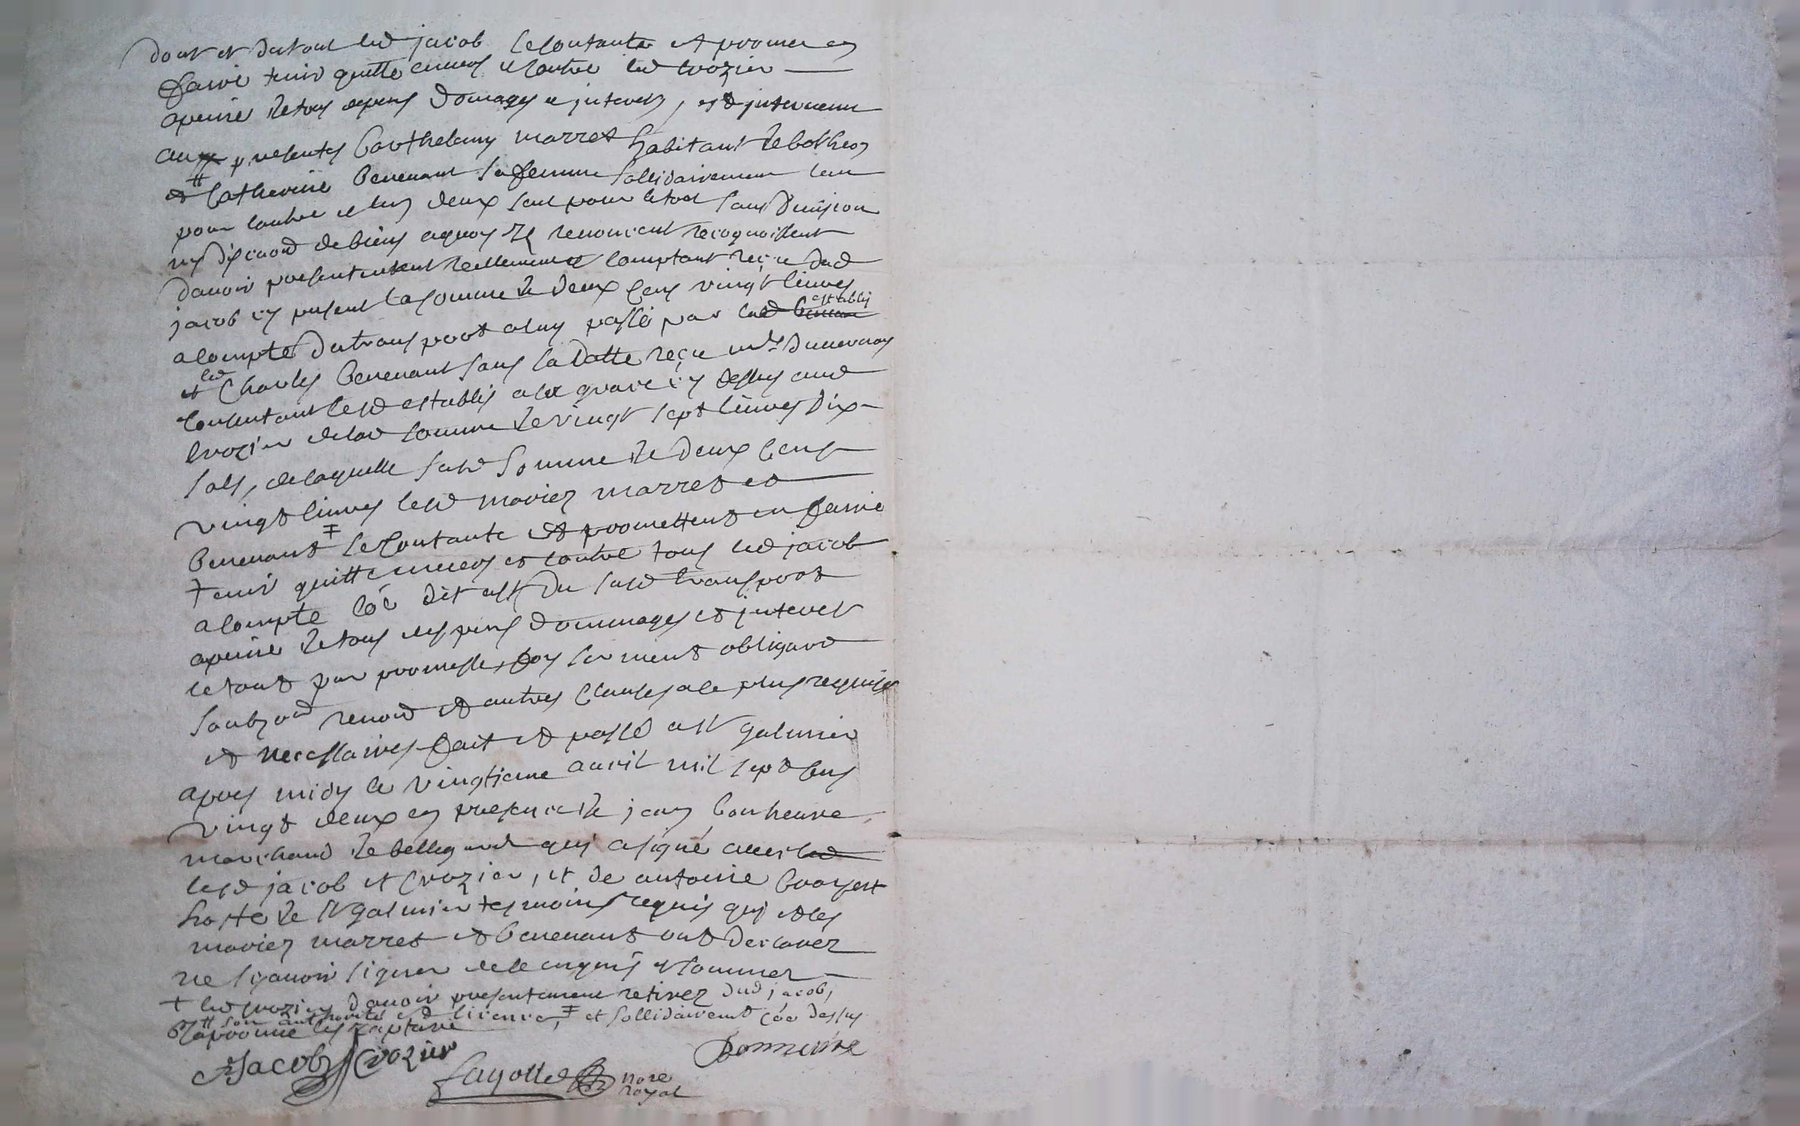 dont et du tout led jacob se contante et promet en
faire tenir quitte envers et contre led Crozier
apeine de tous depens domages et interez, est intervenu
aux presentes Barthelemy marret habitant de botheon
et # Catherine Benevant sa femme sollidairement l'un
pour l'autre et luy deux seul pour le tout sans division
ny discution de biens aquoy Ils renoncent recoignoissent
d'avoir presentement reellement et comptant reçu dud
jacob icy present la somme de deux cens vingt livres
acompte du transport aluy passé par led Benevant establis
et led Charles Benevant sans la datte reçu
consentant lesd establis a la grace cy dessus aud
Crozier de lad somme de vingt sept livres dix
sols, de laquelle susd somme de deux cens
vingt livres lesd mariez marret et
Benevant ‡ se contante et promettent en faire
tenir quitte envers et contre tous led jacob
acompte coe dit est du susd transport
apeine de tous despens dommages et interest
le tout par promesse, foy serment obligaon
soubzon renon et autres clauses ale plus requises
et necessaires fait et passé a St galmier
apres midy le vingtieme avril mil sept cens
vingt deux en presence de jean bonheure
marchand de bellegarde qui a signé avec led
lesd jacob et Crozier, et de antoine
hoste de St galmier tesmoins requis qui et les
mariez marret et Benevant ont declarez
ne sçavoir signer de ce enquis et sommez
+ led crozier d'avoir presentement retirez dud jacob,
# son authorité et licence, ‡ et sollidairement coe dessus
approuvé les
Jacob Crozier
Bonneure
Fayolle nore
royal